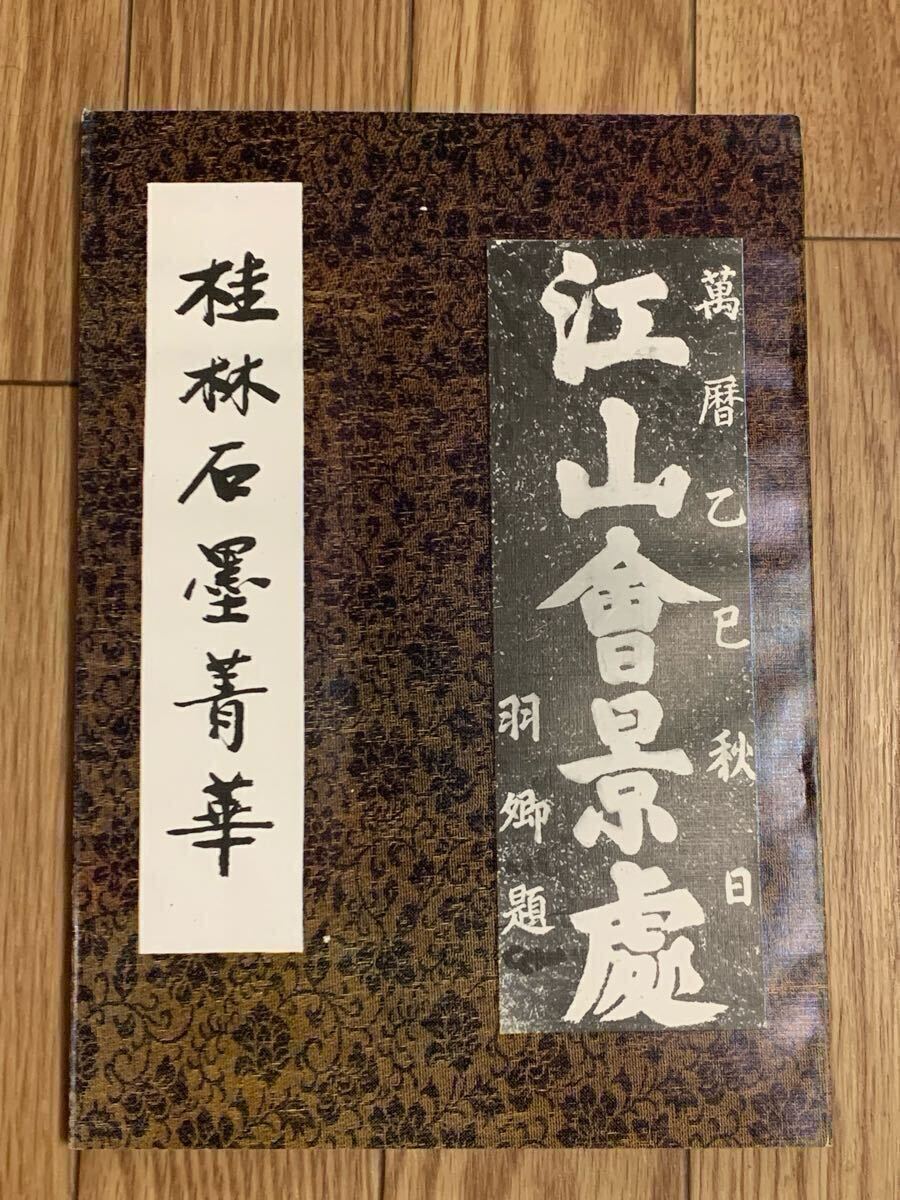 萬曆乙巳秋日
江山會景處
羽卿題
桂林石墨菁華